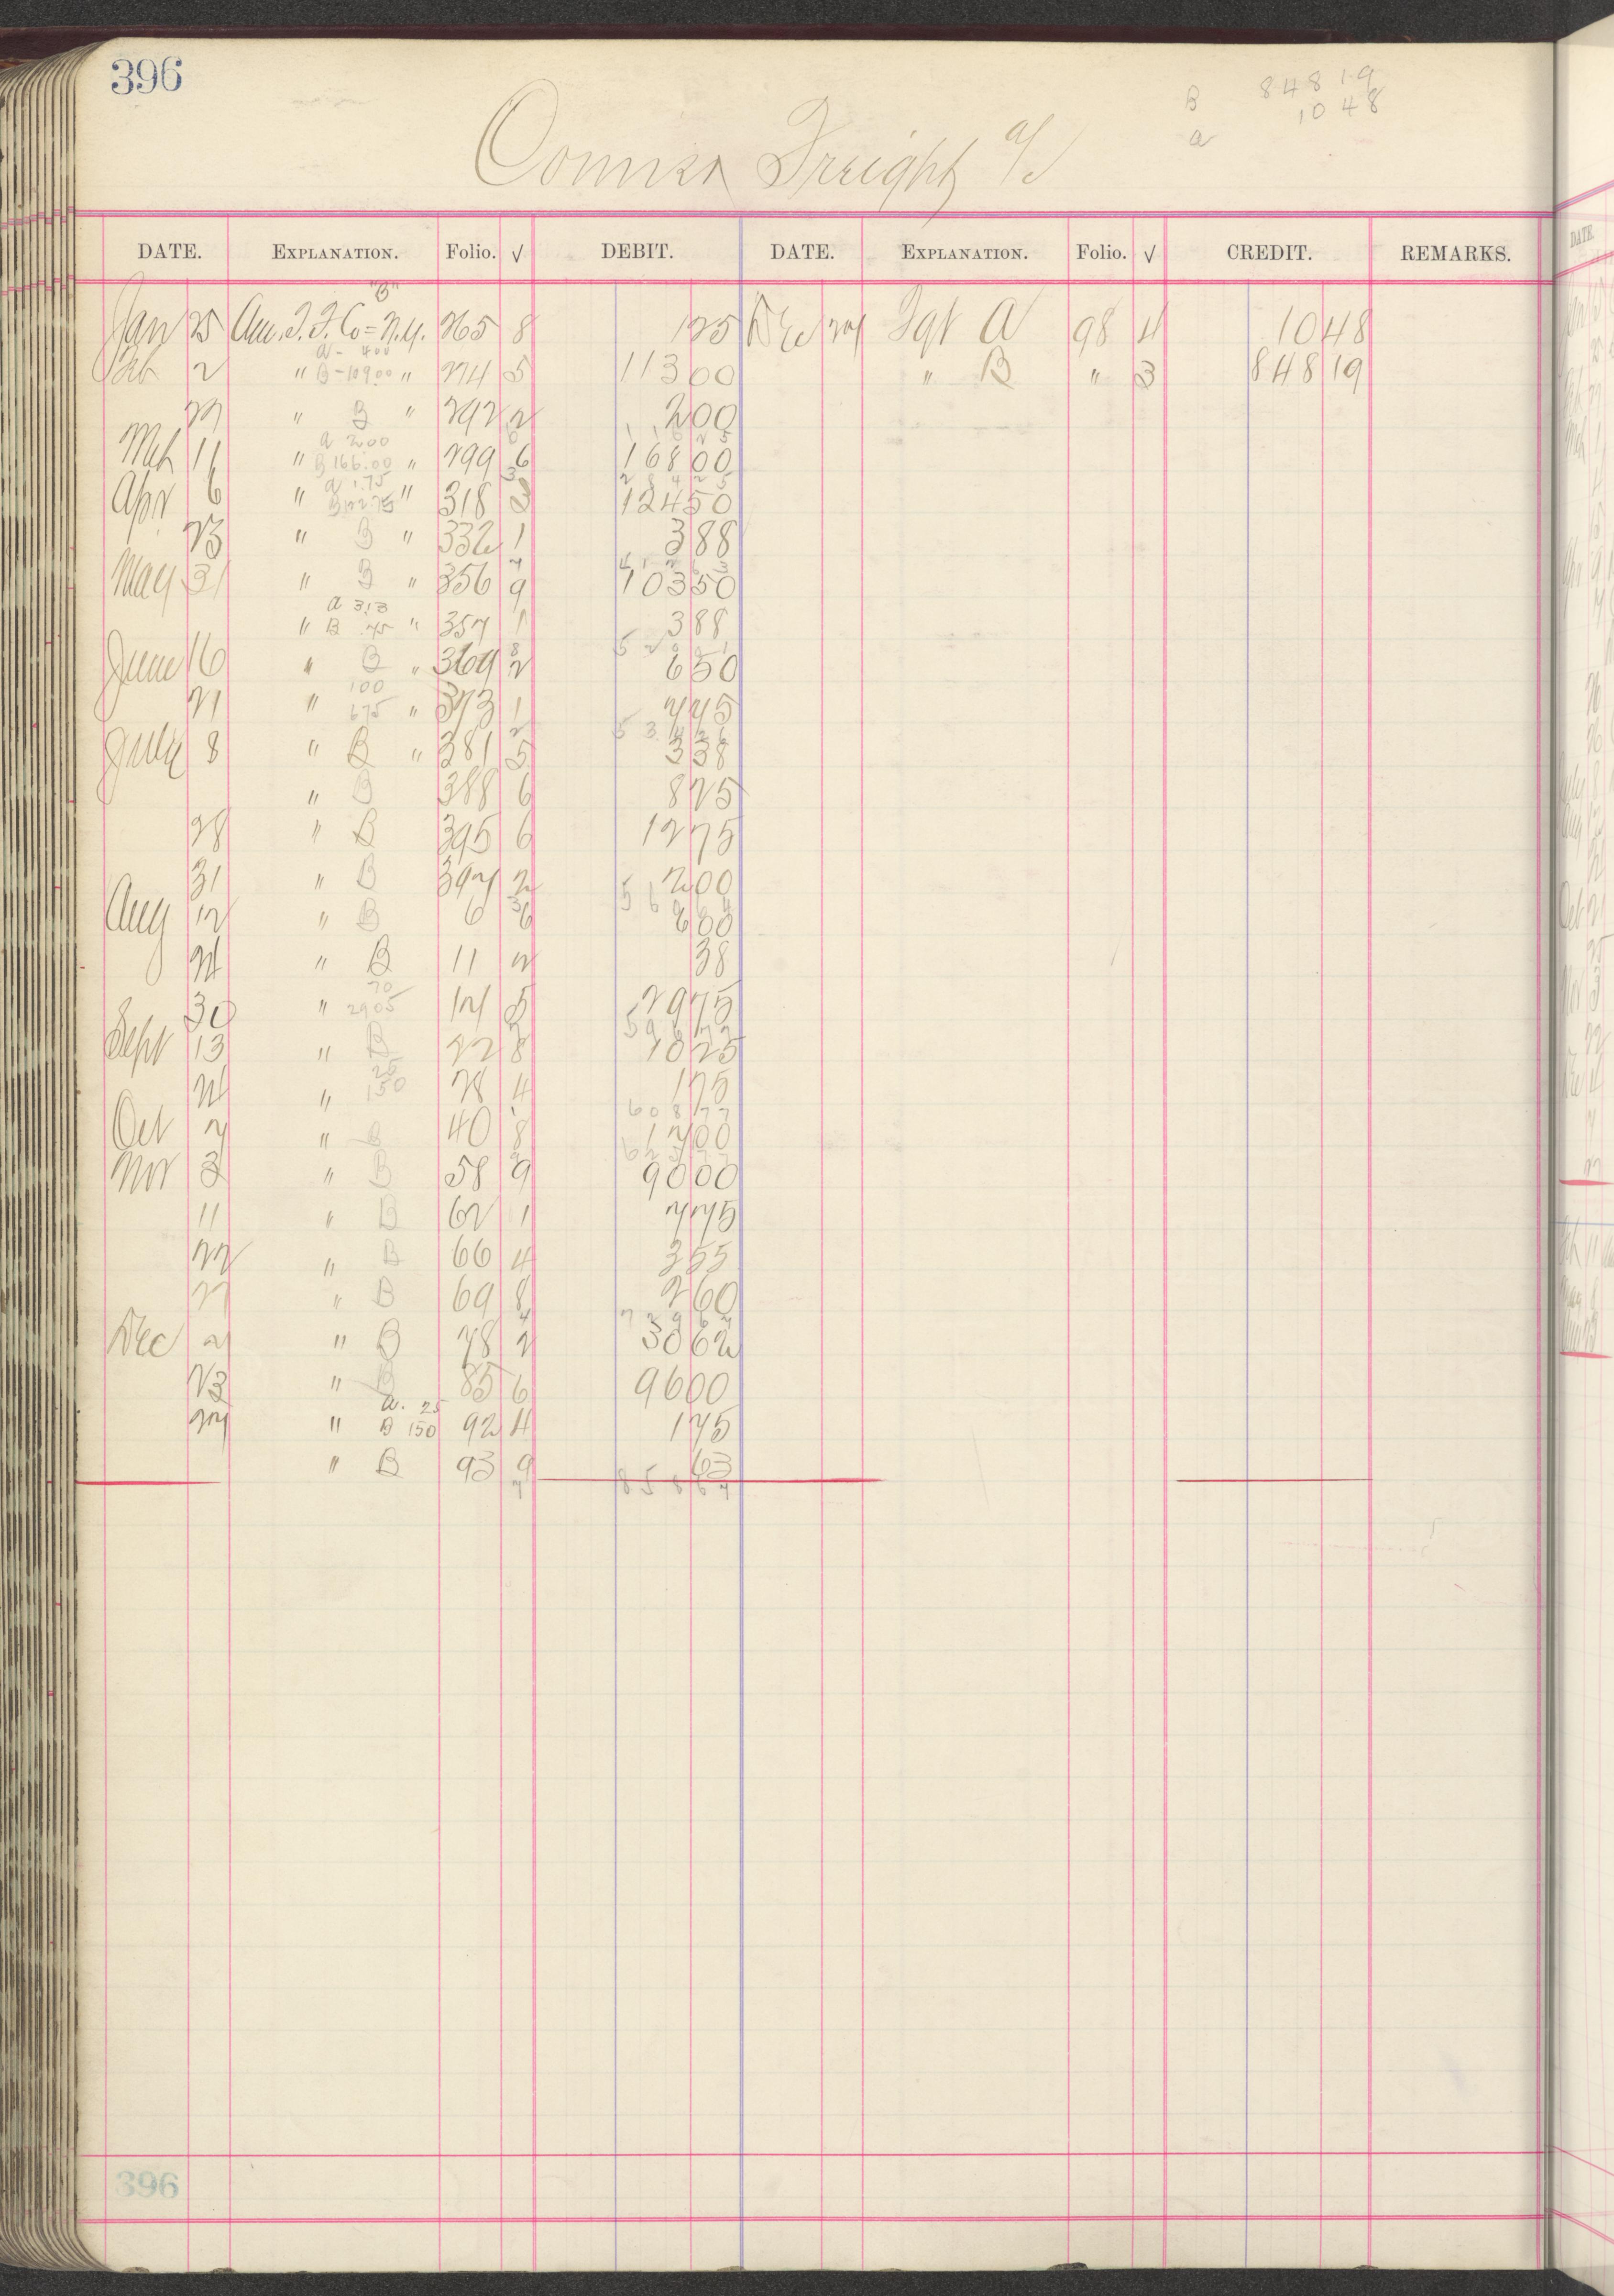 396
B 848 19
10 48
a
Freight a/c
DATE. EXPLANATION. Folio. √ DEBIT. DATE. EXPLANATION. Folio. √ CREDIT. REMARKS.
"B"
Jan 25 Am. T. F. Co = N.Y. 265 8 1 25 Dec 27 Fgt A 98 4 10 48
a - 400
Feb 2 " B - 109.00 " 274 5 113 00 " B " 3 848 19
27 " B " 292 2 2 00
a 2.00
Mch 11 " B 166.00 " 299 6 168 00
a 1.75
Apr 6 " B 122.75 " 318 3 124 50
23 " B " 332 1 3 88
May 31 " B " 356 9 103 50
a 3.13
" B .75 " 357 1 3 88
June 16 " B " 364 2 6 50
100
21 " 675 " 373 1 7 75
July 8 " B " 381 5 3 38
" B 388 6 8 25
28 " B 395 6 12 75
31 " B 397 2 2 00
Aug 12 " B 6 6 6 00
24 " B 11 2 38
70
30 " 2905 14 5 29 75
Sept 13 " B 22 8 10 25
25
24 " 150 28 4 1 75
Oct 7 " B 40 8 17 00
Nov 3 " B 58 9 90 00
11 " B 62 1 7 75
22 " B 66 4 3 55
27 " B 69 8 2 60
Dec 2 " B 78 2 30 62
23 " B 85 6 96 00
a. 25
27 " B 150 92 4 1 75
" B 93 9 63
7 858 67
396